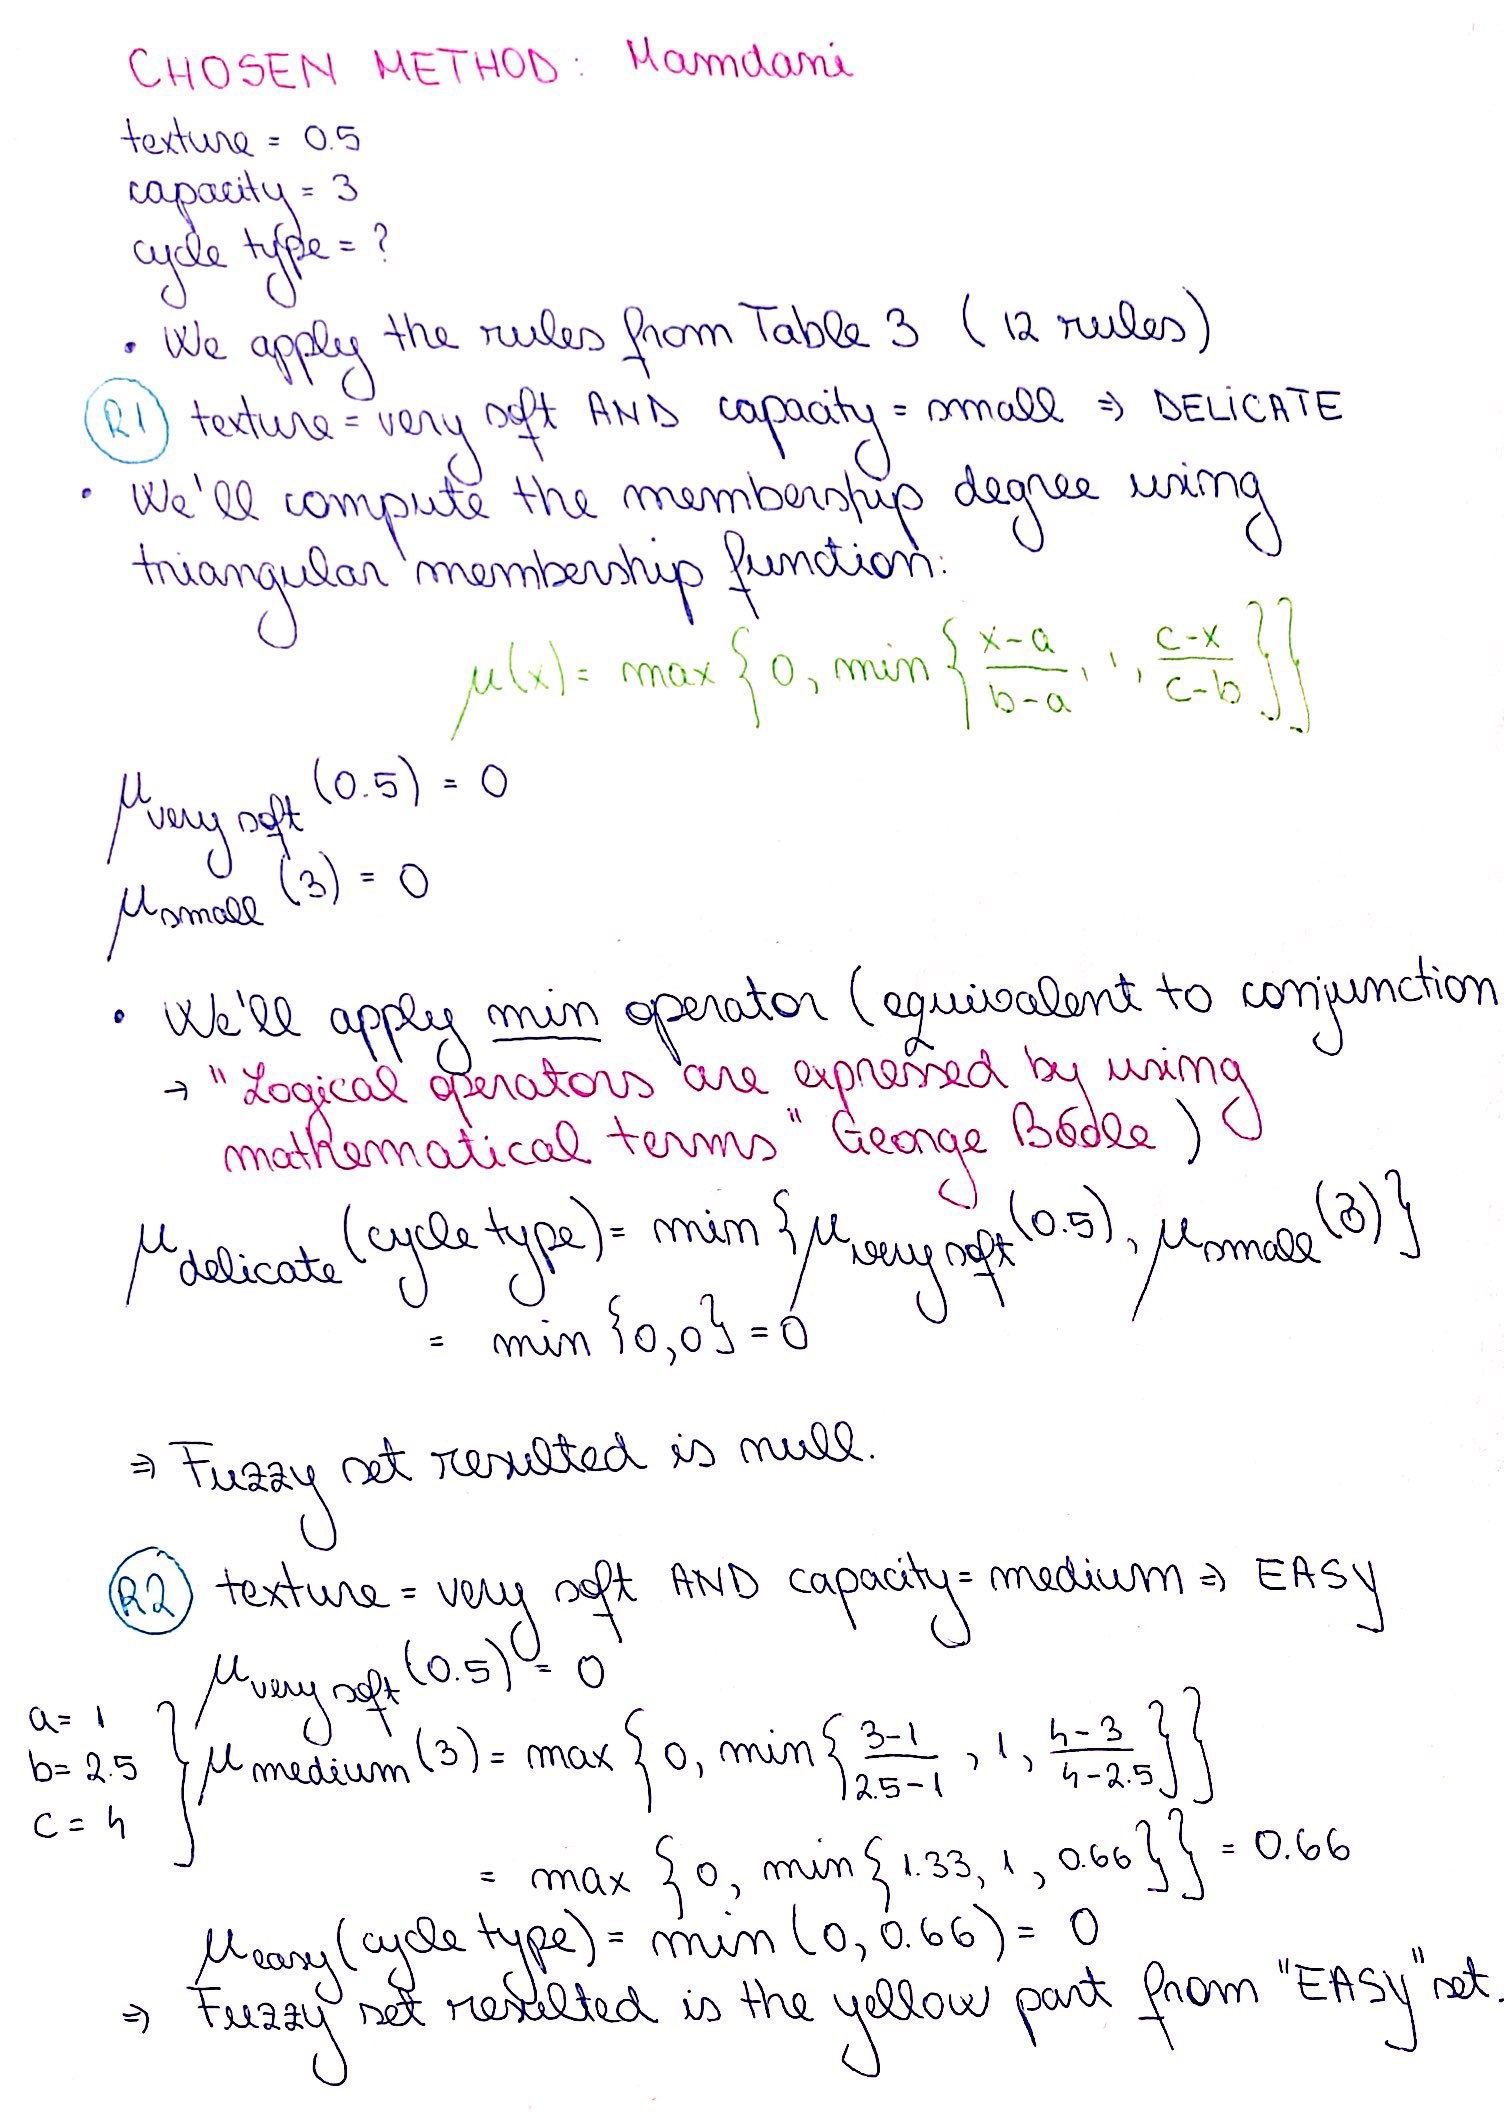 CHOSEN METHOD: Mamdani
texture = 0.5
capacity = 3
cycle type = ?
• We apply the rules from Table 3 (12 rules)
R1 texture = very soft AND capacity = small ⇒ DELICATE
• We'll compute the membership degree using
triangular membership function:
μ(x) = max{0, min{x-a/b-a, 1, c-x/c-b}}
μ very soft (0.5) = 0
μ small (3) = 0
• We'll apply min operator (equivalent to conjunction
→ "Logical operators are expressed by using
mathematical terms" George Boole)
μ delicate (cycle type) = min{μ very soft (0.5), μ small (3)}
= min{0,0} = 0
⇒ Fuzzy set resulted is null.
R2 texture = very soft AND capacity = medium ⇒ EASY
μ very soft (0.5) = 0
a = 1
b = 2.5
c = 4
μ medium (3) = max{0, min{3-1/2.5-1, 1, 4-3/4-2.5}}
= max{0, min{1.33, 1, 0.66}} = 0.66
μ easy (cycle type) = min(0, 0.66) = 0
⇒ Fuzzy set resulted is the yellow part from "EASY" set.